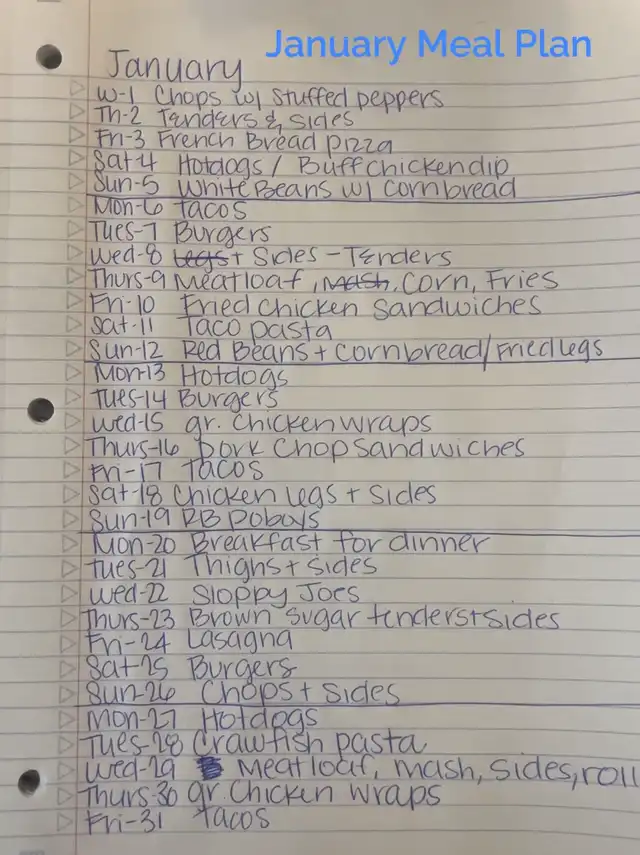 January Meal Plan
January
W-1 Chops w/ Stuffed peppers
Th-2 Tenders & sides
Fri-3 French Bread pizza
Sat-4 Hotdogs / Buffchickendip
Sun-5 White Beans w/ cornbread
Mon-6 Tacos
Tues-7 Burgers
Wed-8 Legs + Sides - Tenders
Thurs-9 Meatloaf, mash, corn, Fries
Fri-10 Fried Chicken Sandwiches
Sat-11 Taco pasta
Sun-12 Red Beans + cornbread/Fried legs
Mon-13 Hotdogs
Tues-14 Burgers
Wed-15 gr. Chicken wraps
Thurs-16 Pork Chop Sandwiches
Fri-17 Tacos
Sat-18 Chicken Legs + Sides
Sun-19 RB Poboys
Mon-20 Breakfast for dinner
Tues-21 Thighs + sides
Wed-22 Sloppy Joes
Thurs-23 Brown Sugar tenders + sides
Fri-24 Lasagna
Sat-25 Burgers
Sun-26 Chops + sides
Mon-27 Hotdogs
Tues-28 Crawfish pasta
Wed-29 Meatloaf, mash, sides, roll
Thurs-30 gr. Chicken wraps
Fri-31 Tacos